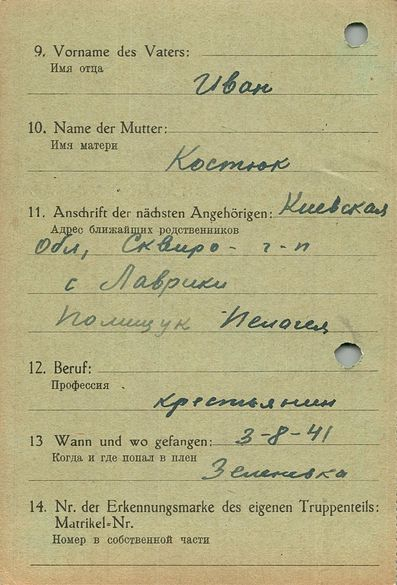 9. Vorname des Vaters:
Имя отца
Иван
10. Name der Mutter:
Имя матери
Костюк
11. Anschrift der nächsten Angehörigen: Киевская
Адрес ближайших родственников
обл, Сквиро- г-п
с Лаврики
Полищук Пелагея
12. Beruf:
Профессия
крестьянин
13 Wann und wo gefangen: 3-8-41
Когда и где попал в плен
Зеленивка
14. Nr. der Erkennungsmarke des eigenen Truppenteils:
Matrikel-Nr.
Номер в собственной части